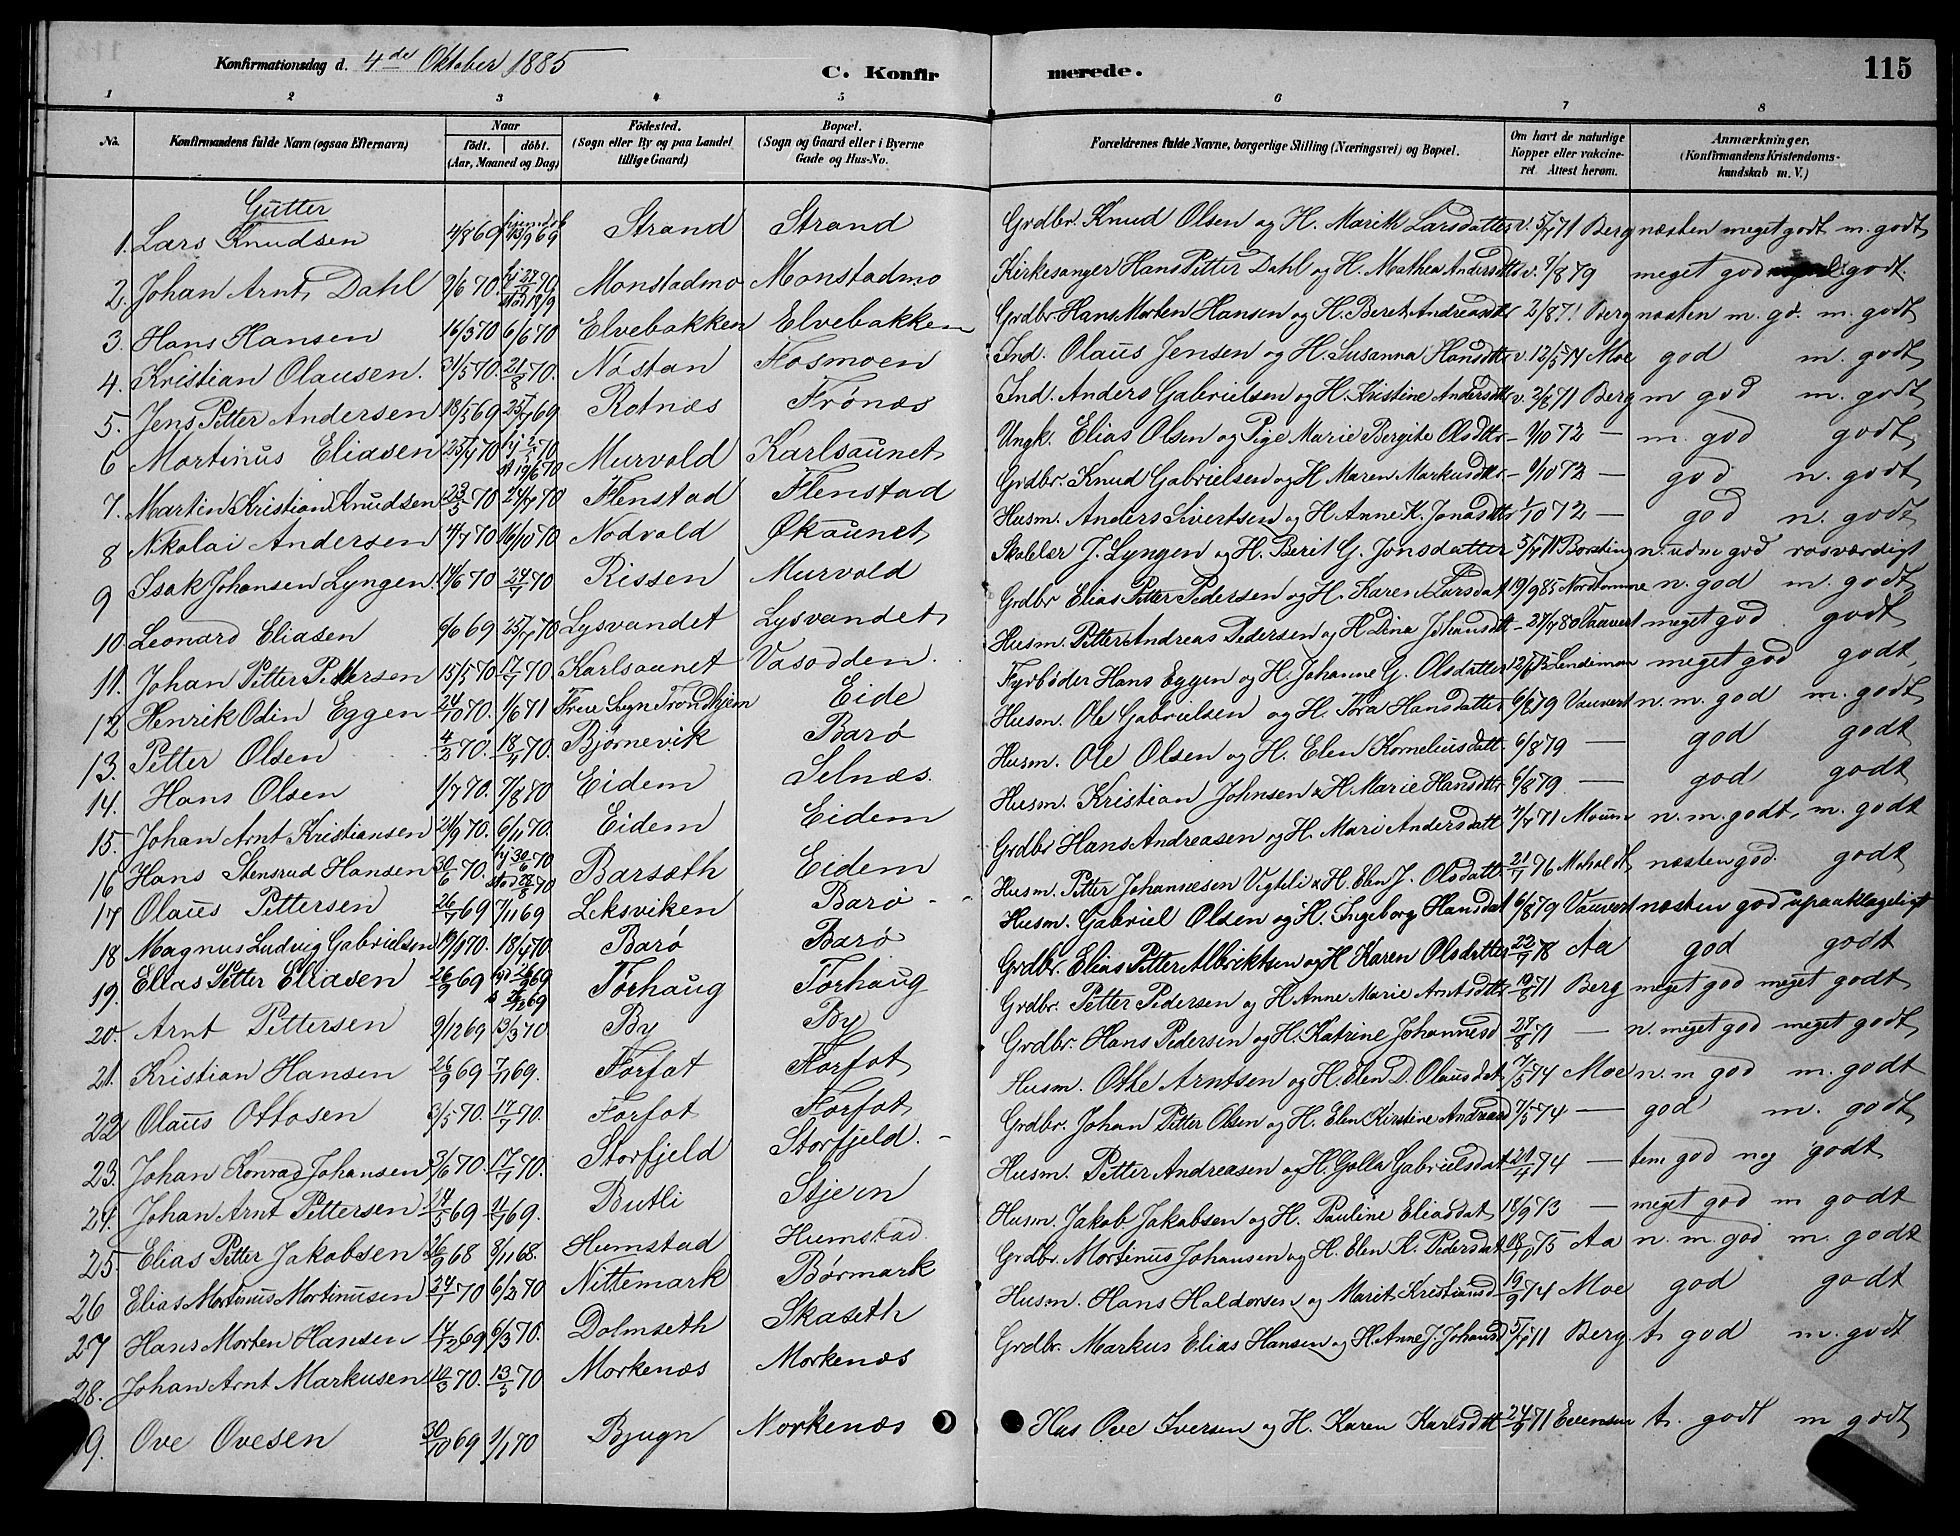 Konfirmationsdag d. 4de Oktober 1885 C. Konfirmerede. 115
1 2 3 4 5 6 7 8
No. Konfirmandens fulde Navn (ogsaa Efternavn) Naar født. døbt. (Aar, Maaned og Dag) Fødested. (Sogn eller By og paa Landet tillige Gaard) Bopæl. (Sogn og Gaard eller i Byerne Gade og Hus-No. Forældrenes fulde Navne, borgerlige Stilling (Næringsvei) og Bopæl. Om havt de naturlige Kopper eller vakcineret. Attest herom. Anmærkninger. (Konfirmandens Kristendomskundskab m. V.)
Gutter
1. Lars Knudsen 4/8 69 13/9 69 Strand Strand Grdbr. Knud Olsen og H. Marith Larsdatter v. 5/7 71 Berg næsten meget godt m. godt
2. Johan Arnt Dahl 9/6 70. Monstadmo Monstadmo Kirkesanger Hans Petter Dahl og H. Mathea Andersdtr v. 7/8 79 meget god godt.
3. Hans Hansen 16/3 70 6/6 70 Elvebakken Elvebakken Grdbr Hans Morten Hansen og H. Beret Andreasdtr 2/8 71 Berg næsten m. gd. m. godt
4. Kristian Olausen. 31/5 70. 21/8 70. Nøstan Fosmoen Ind. Olaus Jensen og H. Susanna Hansdtr v. 12/5 74 Moe god m. godt
5. Jens Petter Andersen 13/5 69 25/7 69 Rotnæs Frønæs Ind. Anders Gabrielsen og H. Kristine Andersdtr v. 2/8 71 Berg m god m. godt
6 Mortinus Eliasen 25/4 70 hj 2/5 70 st 19/6 70 Murvold Karlsaunet Ungk. Elias Olsen og Pige Marie Bergite Olsdtr - 9/10 72 — m. god godt
7. Martin Kristian Knudsen 23/5 70 24/7 70 Flenstad Flenstad Grdbr. Knud Gabrielsen og H Maren Markusdtr - 9/10 72 — god n. godt
8 Nikolai Andersen 14/7 70 16/10 70 Nodvold Økaunet Husm. Anders Sivertsen og H Anne K. Jonasdtr 1/10 72 — god n. godt
9 Isak Johansen Lyngen. 14/6 70 24/7 70 Rissen Murvold J. Lyngen og H. Berit G. Jonsdatter 5/7 71 n. udm god rosværdigt
10. Leonard Eliasen 6/6 69 25/7 70 Lysvandet Lysvandet Grdbr Elias Petter Pedersen og H. Karen Larsdat 19/9 85 n. god m. godt
11. Johan Petter Pettersen 15/5 70 17/7 70 Karlsaunet Vasodden. Husm. Petter Andreas Pedersen og H Lina Johansdtt - 27/7 80 meget god godt
12 Henrik Odin Eggen 24/10 70. 1/6 71 Trondhjem Eide Fyrbøder Hans Eggen og H. Johanne G. Olsdatter meget god godt,
13. Petter Olsen 4/2 70. 18/4 70. Bjørnevik Barø Husm. Ole Gabrielsen og H. Hansdatter 6/8 79 Vauvert n. m. god m. godt
14. Hans Olsen 1/7 70. 7/8 70 Eidem Selnæs. Husm. Ole Olsen og H. Elen Korneliusdatt 6/8 79 — god godt
15. Johan Arnt Kristiansen 24/9 70. 6/11 70. Eidem Eidem Husm. Kristian Johnsen & H. Marie Hansdtr 6/8 79. — god godt
16 Hans Stensrud Hansen 30/6 70. hj 30/6 70 stad 28/8 70 Barsæth Eidem Grdbr Hans Andreasen og H. Mari Andersdatt 7/7 71 n. m. godt. m. godt
17 Olaus Pettersen 26/7 69 7/11 69 Leksviken Barø Husm. Petter Johannesen Vigtili & H. Elen J. Olsdatt 21/7 76 næsten god. godt
18 Magnus Ludvig Gabrielsen 19/1 70. 18/4 70. Barø Barø Husm. Gabriel Olsen og H. Ingeborg Hansdat 6/8 79 Vauvert næsten god upaaklageligt
19. Elias Petter Eliasen 26/9 69 Forhaug Forhaug Grdbr. Elias Petter Albriktsen og H Karen Olsdatter 22/7 78 Aa god godt
20. Arnt Pettersen 9/12 69 13/3 70 By By Grdbr. Petter Pedersen og H Anne Marie Arntsdtr 19/8 71 Berg meget god meget godt
21. Kristian Hansen 26/9 69 7/11 69. Forfot Forfot Grdbr. Hans Pedersen og H. Katrine Johannesd 27/8 71 — n. meget god meget godt
22 Olaus Ottosen 3/5 70. 17/7 70. Forfot Forfot Husm. Otte Arntsen og H. Elen D. Olausdat 7/5 74 Moe n. m god m. godt
23. Johan Konrad Johansen 3/6 70 17/7 70. Storfjeld Storfjeld. Grdbr. Johan Petter Olsen og H. Elen Kirstine Andreasd 7/5 74 — god m. godt
24. Johan Arnt Pettersen 17/5 69 69. Butli Stjern Husm. Petter Andreasen og H. Golla Gabrielsdat 21/7 74 — tem god nog godt
25. Elias Petter Jakobsen 26/9 68 8/11 68. Humstad Humstad Husm. Jakob Jakobsen og H. Pauline Eliasdat 14/9 73 — meget god m godt
26 Elias Mortinus Mortinusen 24/1 70 6/3 70 Nittemark Børmark Grdbr. Mortinus Johansen og H. Elen K. Pedersdat 75 Aa n. m. god m. godt
27 Hans Morten Hansen 14/12 69 6/3 70. Dolmseth Skaseth Husm. Hans Haldorsen og Marit Kristiansd 19/9 74 Moe god godt
28. Johan Arnt Markusen 10/3 70. 13/5 70 Morkenæs Morkenæs Grdbr. Markus Elias Hansen og H. Anne J. Johansd 5/7 71 Berg t. god m. godt
9. Ove Ovesen 30/10 69 1/1 70 Bjugn Norkenæs Hus Ove Iversen og H. Karen Karlsdtt 24/9 71 Evensen t. godt m godt